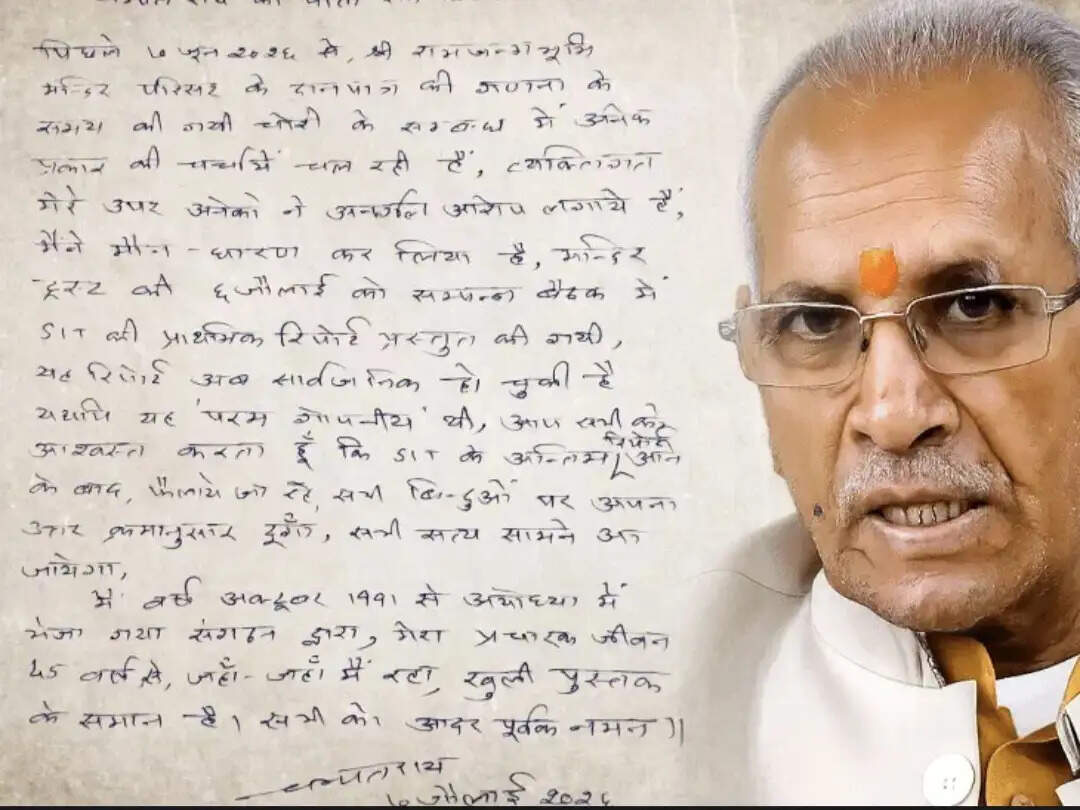 चम्पत राय का
पिछले ७ जून २०२६ से, श्री रामजन्मभूमि
मन्दिर परिसर के दानपात्र की गणना के
समय की गयी चोरी के सम्बन्ध में अनेक
प्रकार की चर्चायें चल रही हैं, व्यक्तिगत
मेरे उपर अनेको ने अनर्गल आरोप लगाये हैं,
मैंने मौन-धारण कर लिया है, मन्दिर
ट्रस्ट की ६ जौलाई को सम्पन्न बैठक में
SIT की प्राथमिक रिपोर्ट प्रस्तुत की गयी,
यह रिपोर्ट अब सार्वजनिक हो चुकी है
यद्यपि यह परम गोपनीय थी, आप सभी को
आश्वस्त करता हूँ कि SIT के अन्तिम रिपोर्ट आने
के बाद, फैलाये जा रहे, सभी बिन्दुओं पर अपना
उत्तर क्रमानुसार दूँगा, सभी सत्य सामने आ
जायेगा,
मैं वर्ष अक्टूबर 1991 से अयोध्या में
भेजा गया संगठन द्वारा, मेरा प्रचारक जीवन
45 वर्ष से, जहाँ-जहाँ मैं रहा, खुली पुस्तक
के समान है। सभी को आदर पूर्वक नमन।।
चम्पतराय
७ जौलाई २०२६